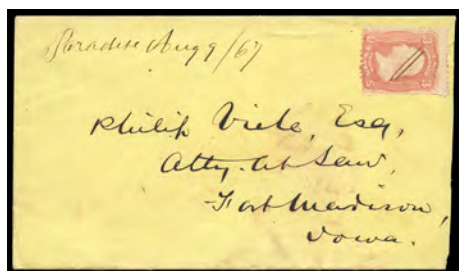 Paradise Aug 9/67
Philip Viele, Esq,
Atty. at Law,
Fort Madison,
Iowa.